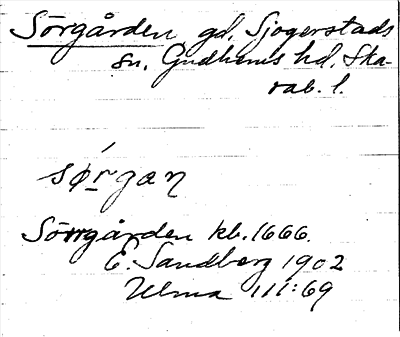 Sörgården gd, Sjogerstads
sn. Gudhems hd, Ska-
rab. l.
sǿrgan
Sörrgården kb. 1666.
E. Sandberg 1902
Ulma 111:69